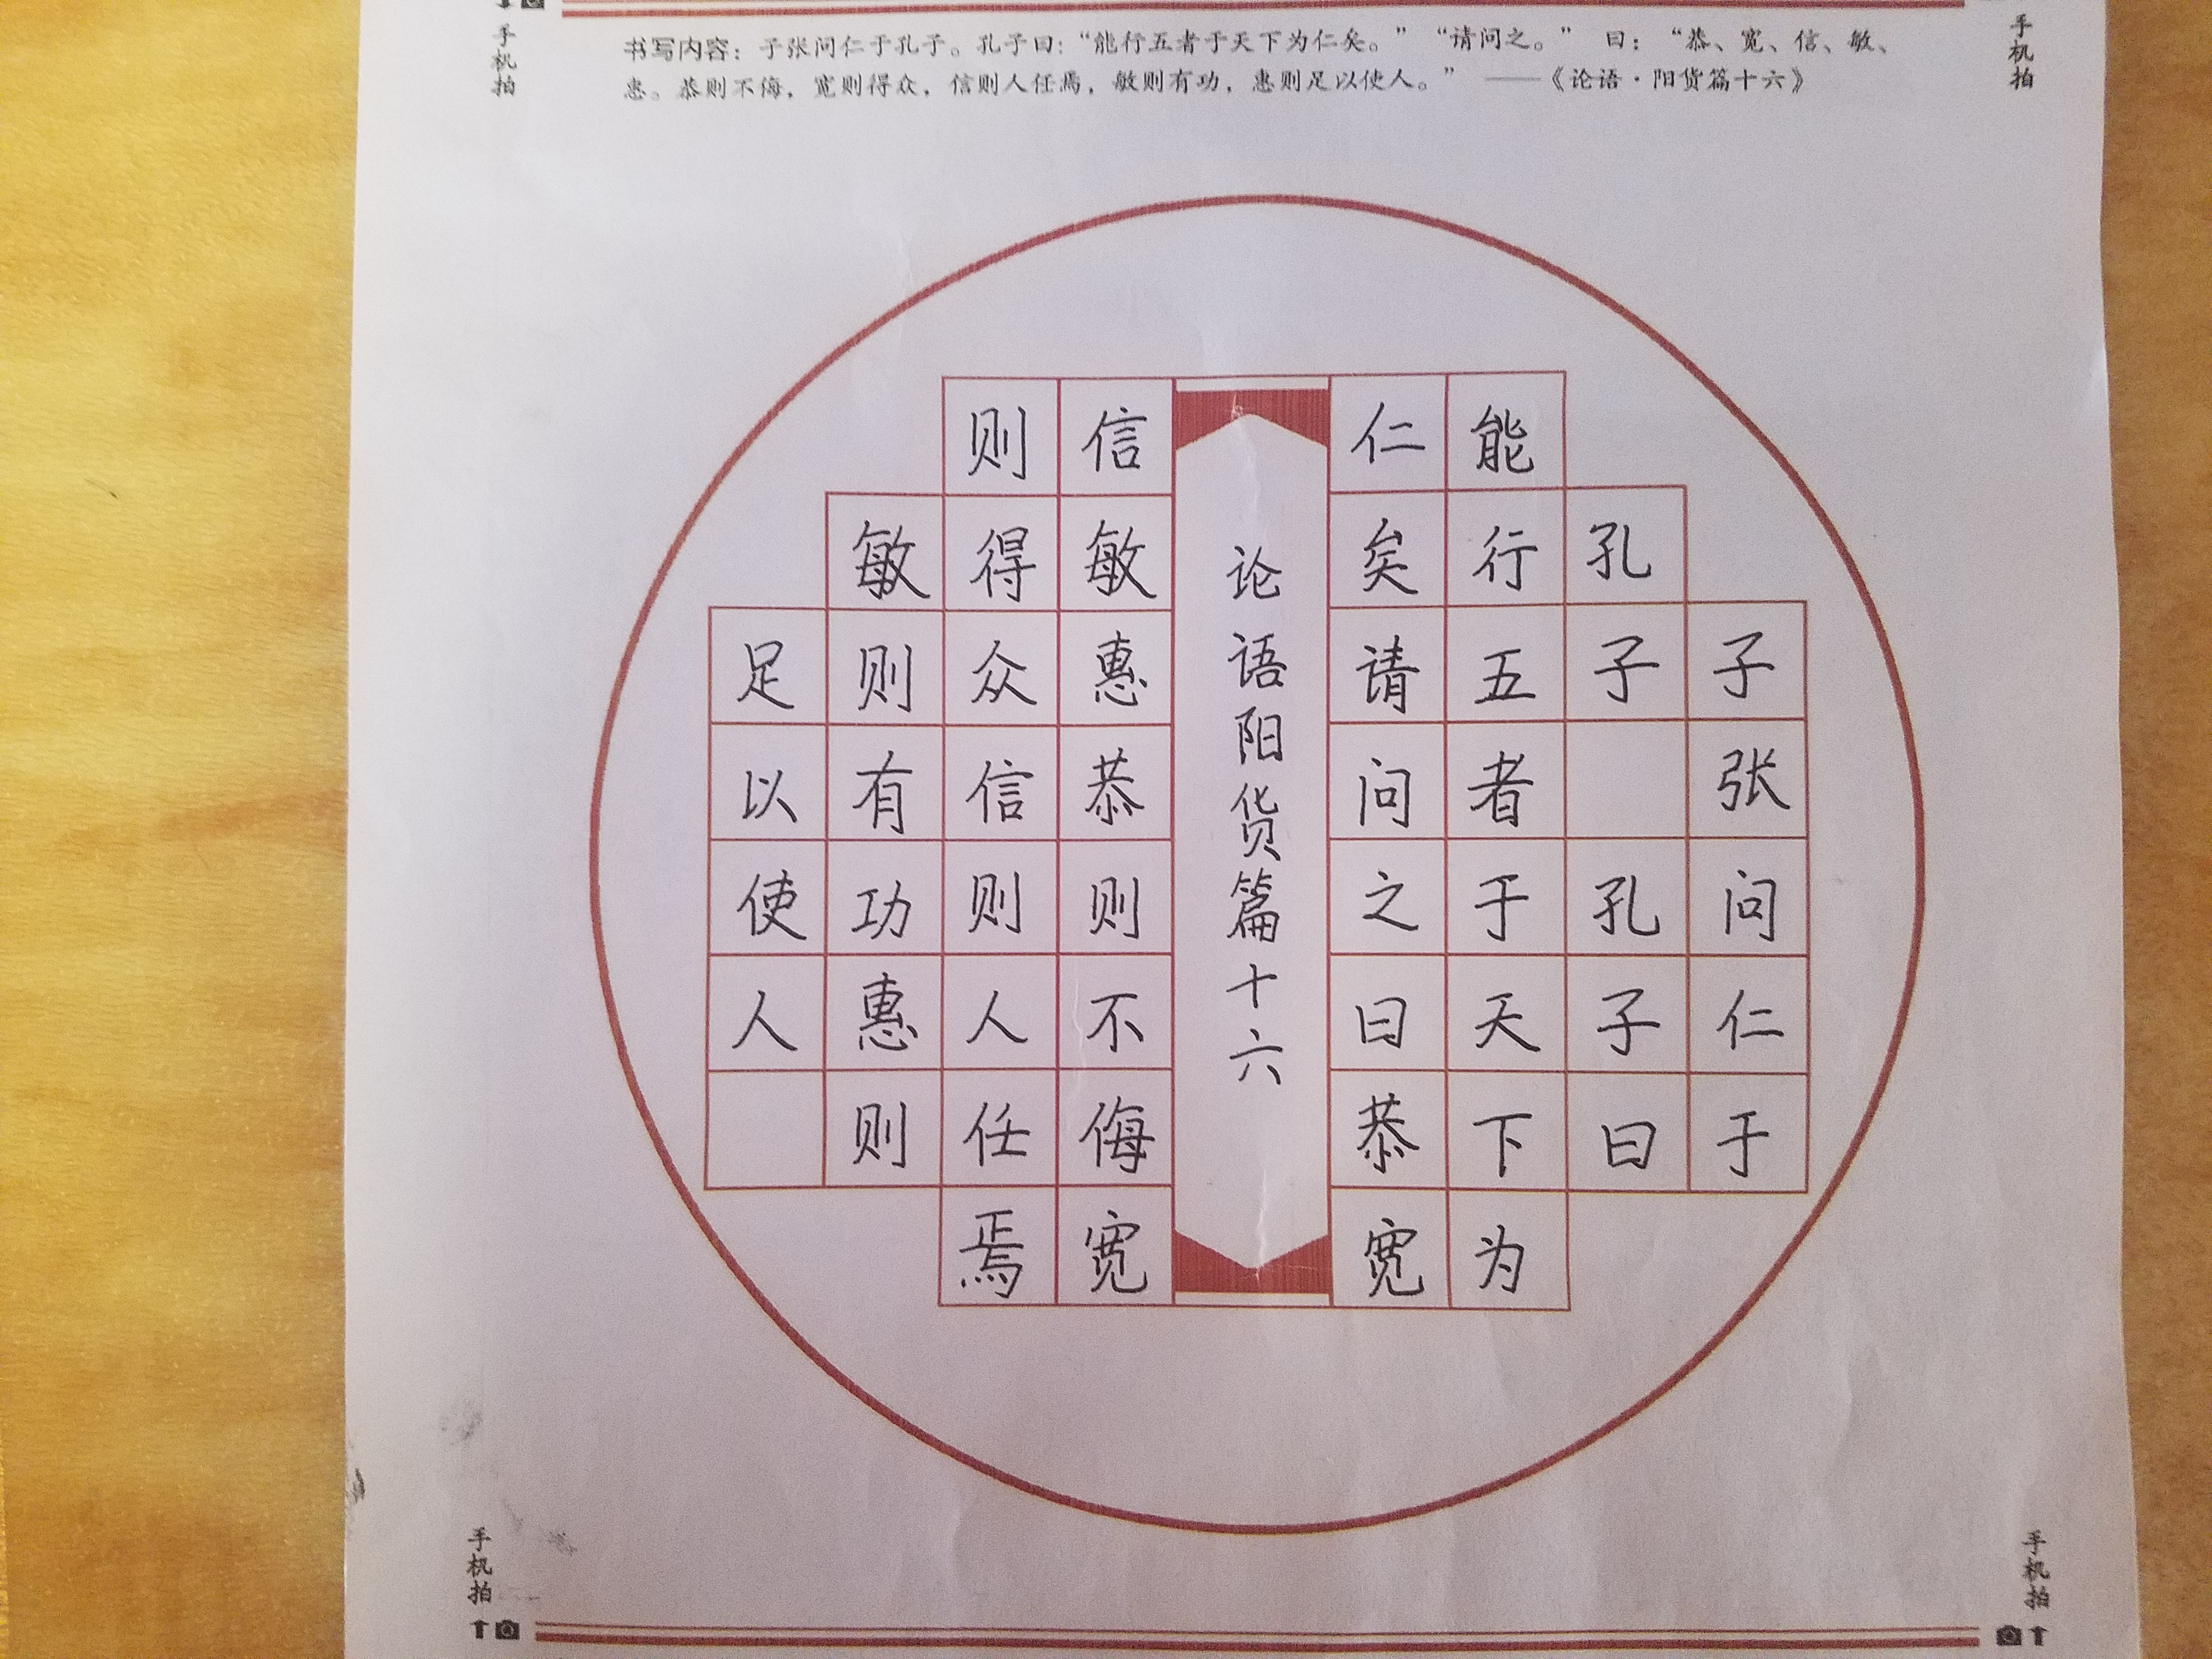 手机拍
书写内容：子张问仁于孔子。孔子曰：“能行五者于天下为仁矣。”“请问之。” 曰：“恭、宽、信、敏、
惠。恭则不侮，宽则得众，信则人任焉，敏则有功，惠则足以使人。” ——《论语·阳货篇十六》
手机拍
子张问仁于
孔子 孔子曰
能行五者于天下为
仁矣请问之曰恭宽
论语阳货篇十六
信敏惠恭则不侮宽
则得众信则人任焉
敏则有功惠则
足以使人
手机拍
手机拍